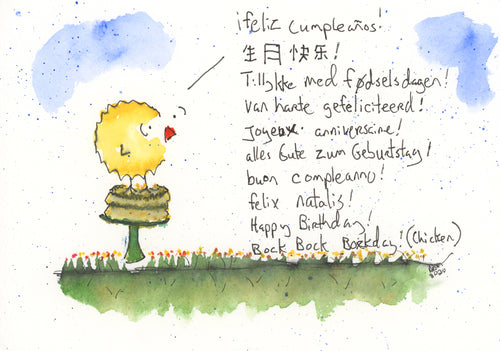 ¡feliz Cumpleaños!
生日快乐!
Tillykke med fødselsdagen!
van harte gefeliciteerd!
Joyeux anniversaire!
alles Gute zum Geburtstag!
buon compleanno!
felix natalis!
Happy Birthday!
Bock Bock Bockday! (Chicken)
2020